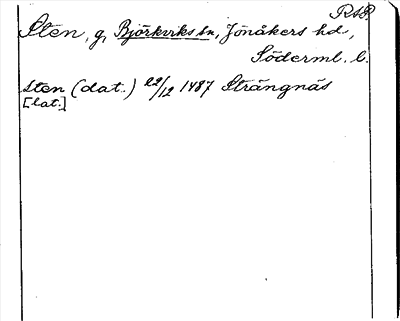 RAP.
Sten, g, Björkviks sn, Jönåkers hd.,
Söderml. l.
Sten (dat.) 22/12 1487 Strängnäs
[lat.]